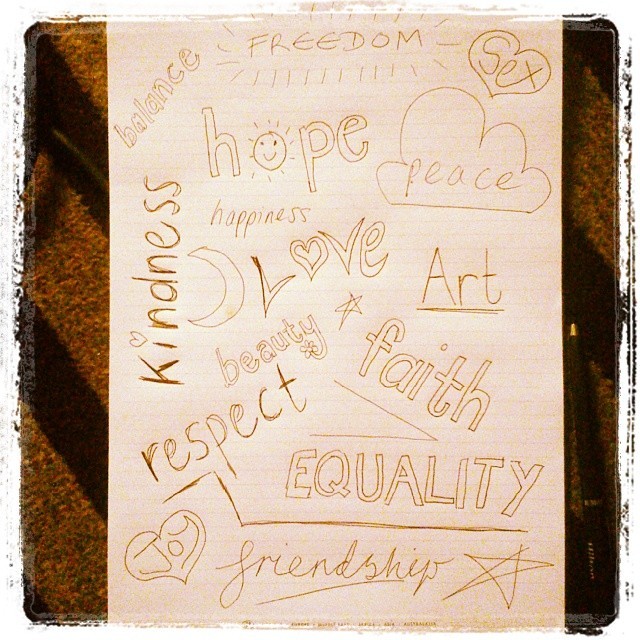 FREEDOM
Sex
balance
hope
peace
Kindness
happiness
Love
Art
beauty
faith
respect
EQUALITY
JOY
friendship